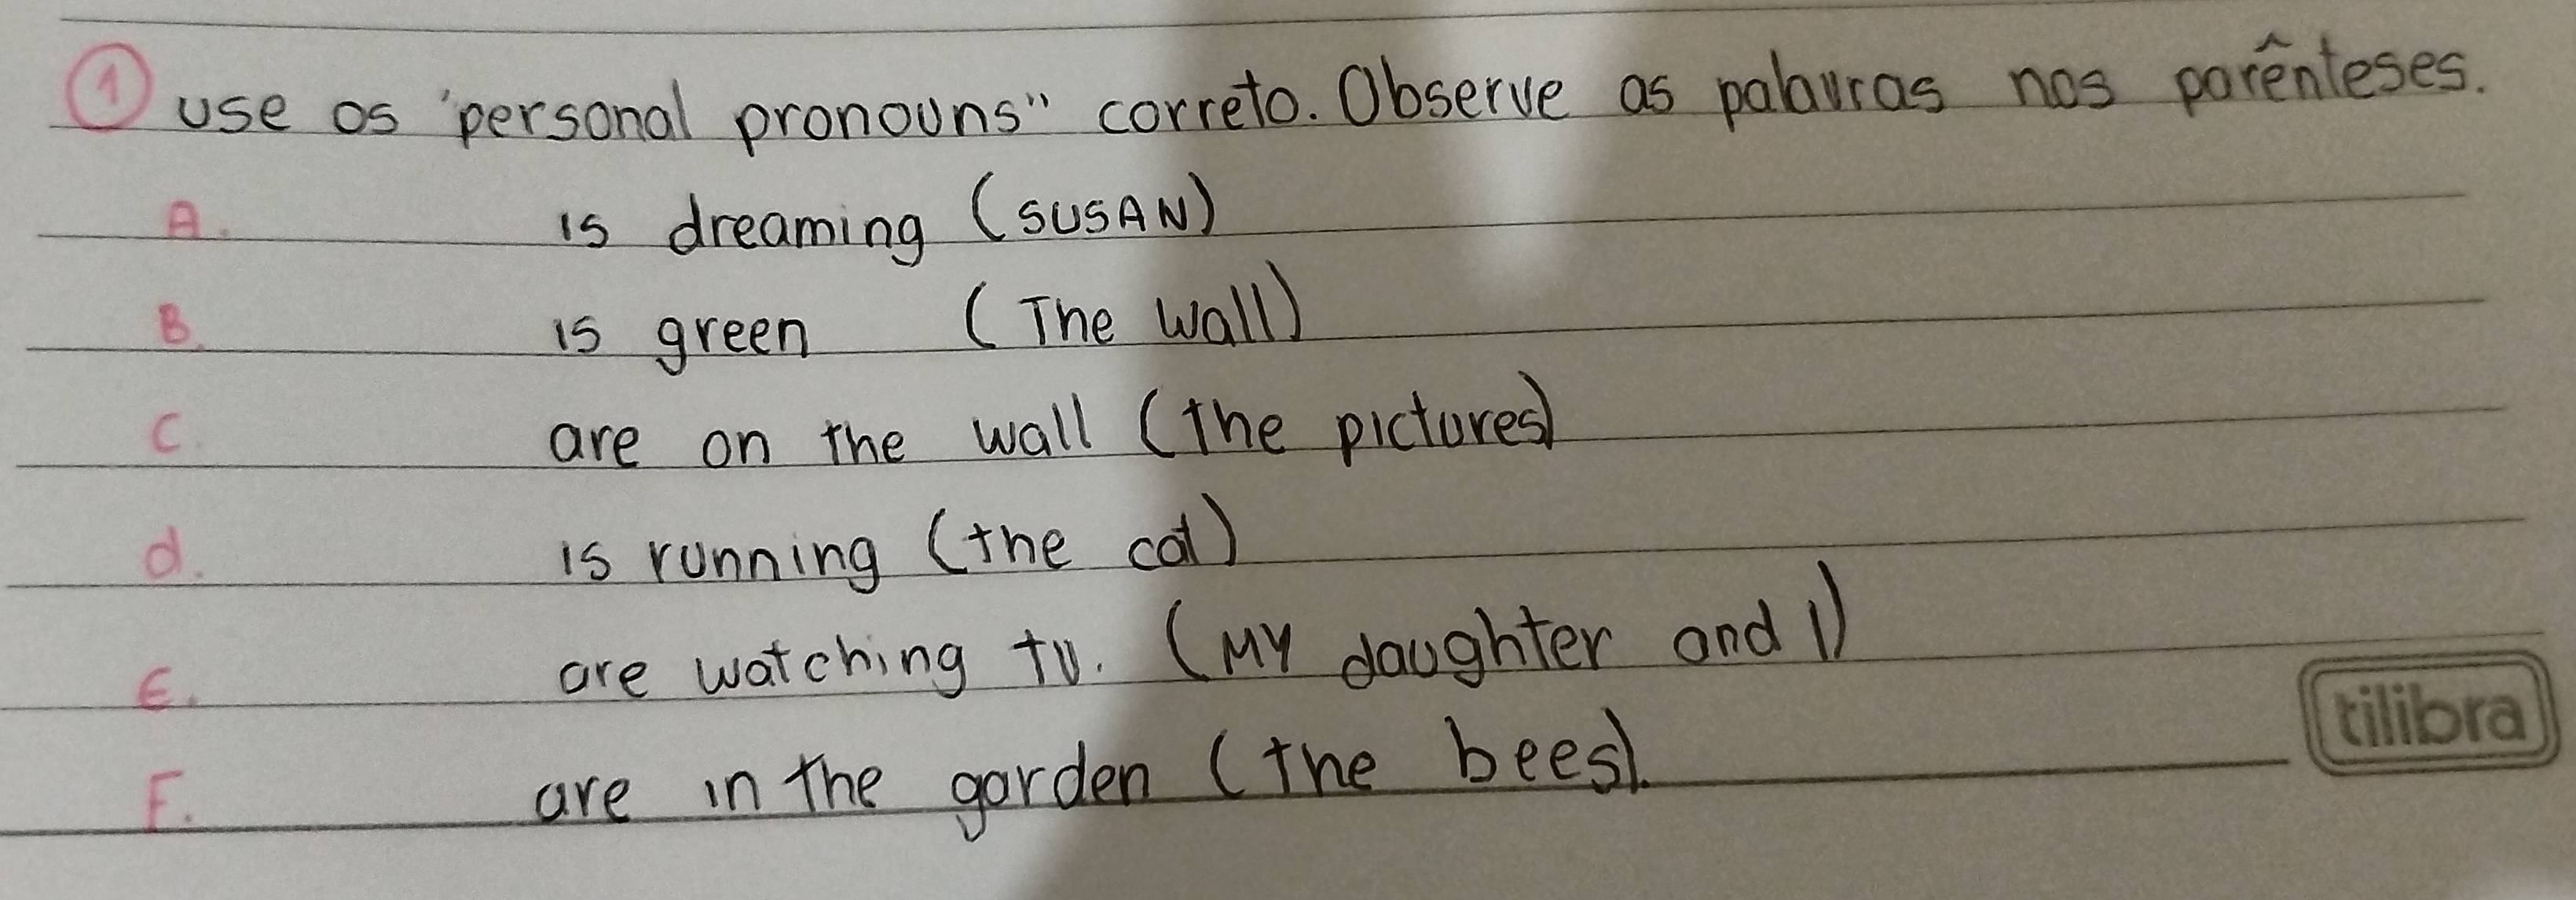 1 use os "personal pronouns" correto. Observe as palavras nos parênteses.
A. is dreaming (SUSAN)
B. is green (The wall)
C. are on the wall (the pictures)
d. is running (the cat)
E. are watching tv. (MY daughter and I)
F. are in the garden (the bees).
tilibra